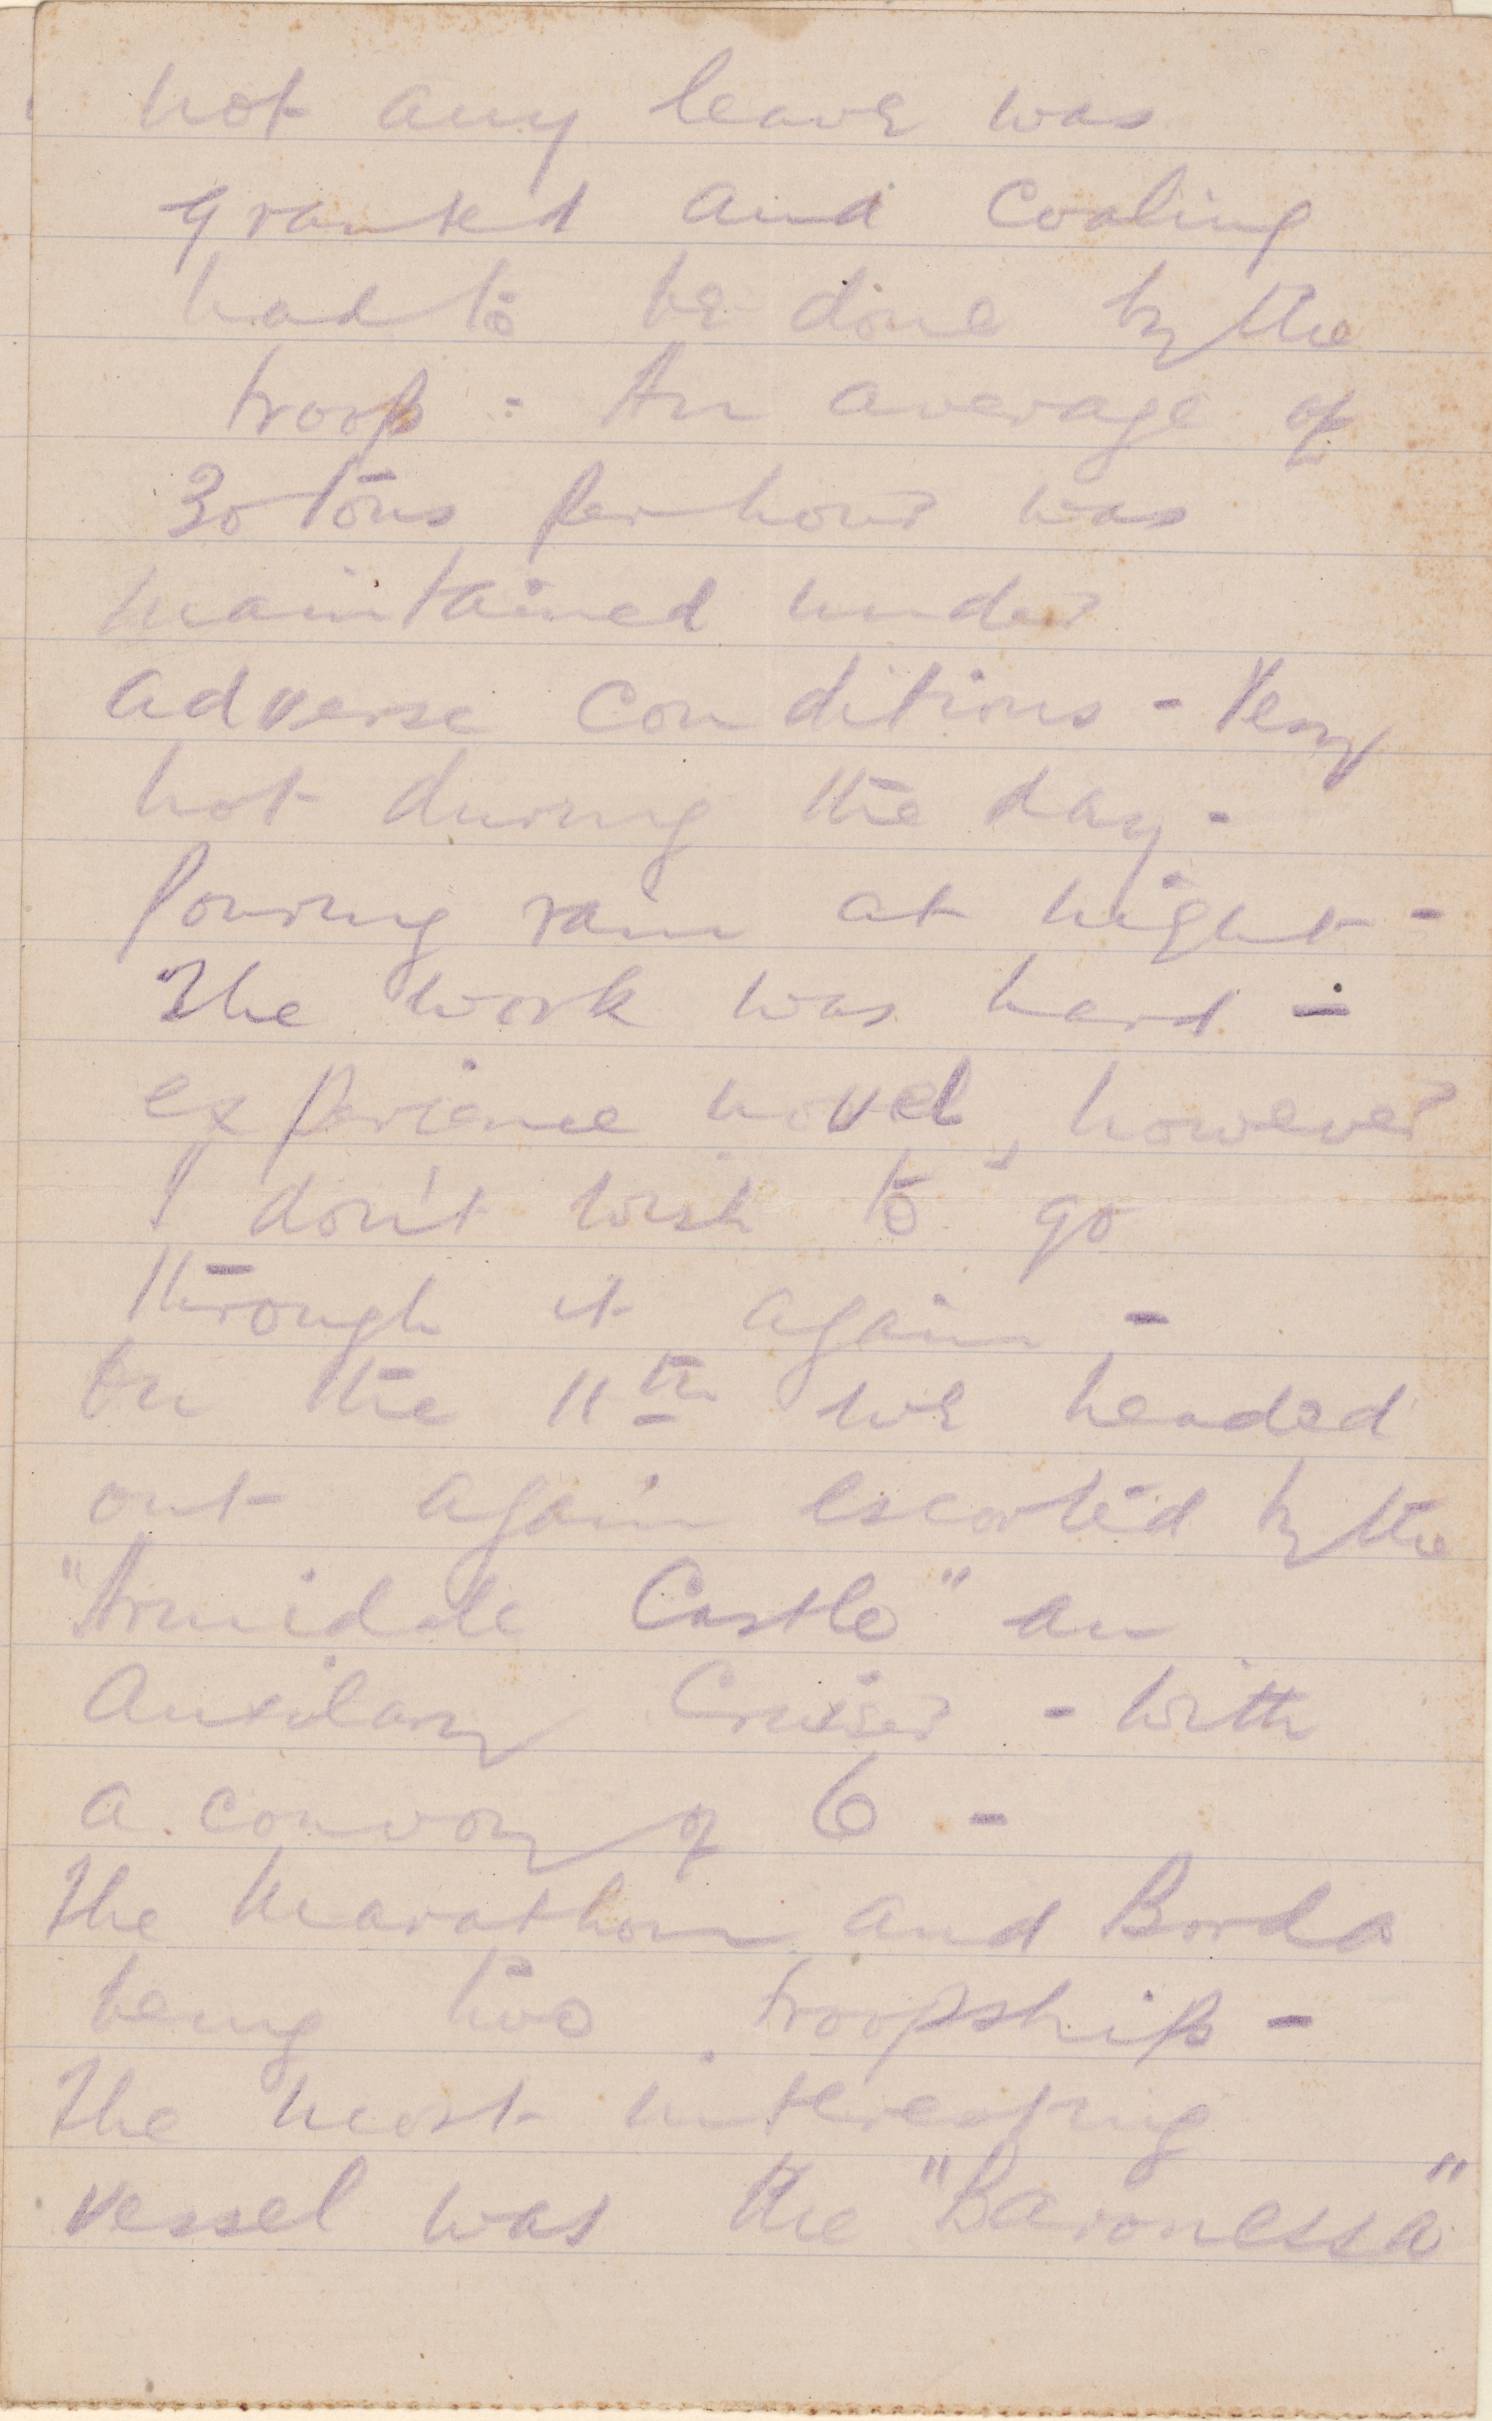 not any leave was
granted and coaling
had to be done by the
troops : An average of
30 tons per hour was
maintained under
adverse conditions - Very
hot during the day -
pouring rain at night -
The work was hard -
experience novel, however
I don't wish to go
through it again -
On the 11th we headed
out again escorted by the
"Armidale Castle" an
Auxilary Cruiser - with
a convoy of 6 -
The Marathon and Borda
being two troopships -
The most interesting
vessel was the "Baronessa"